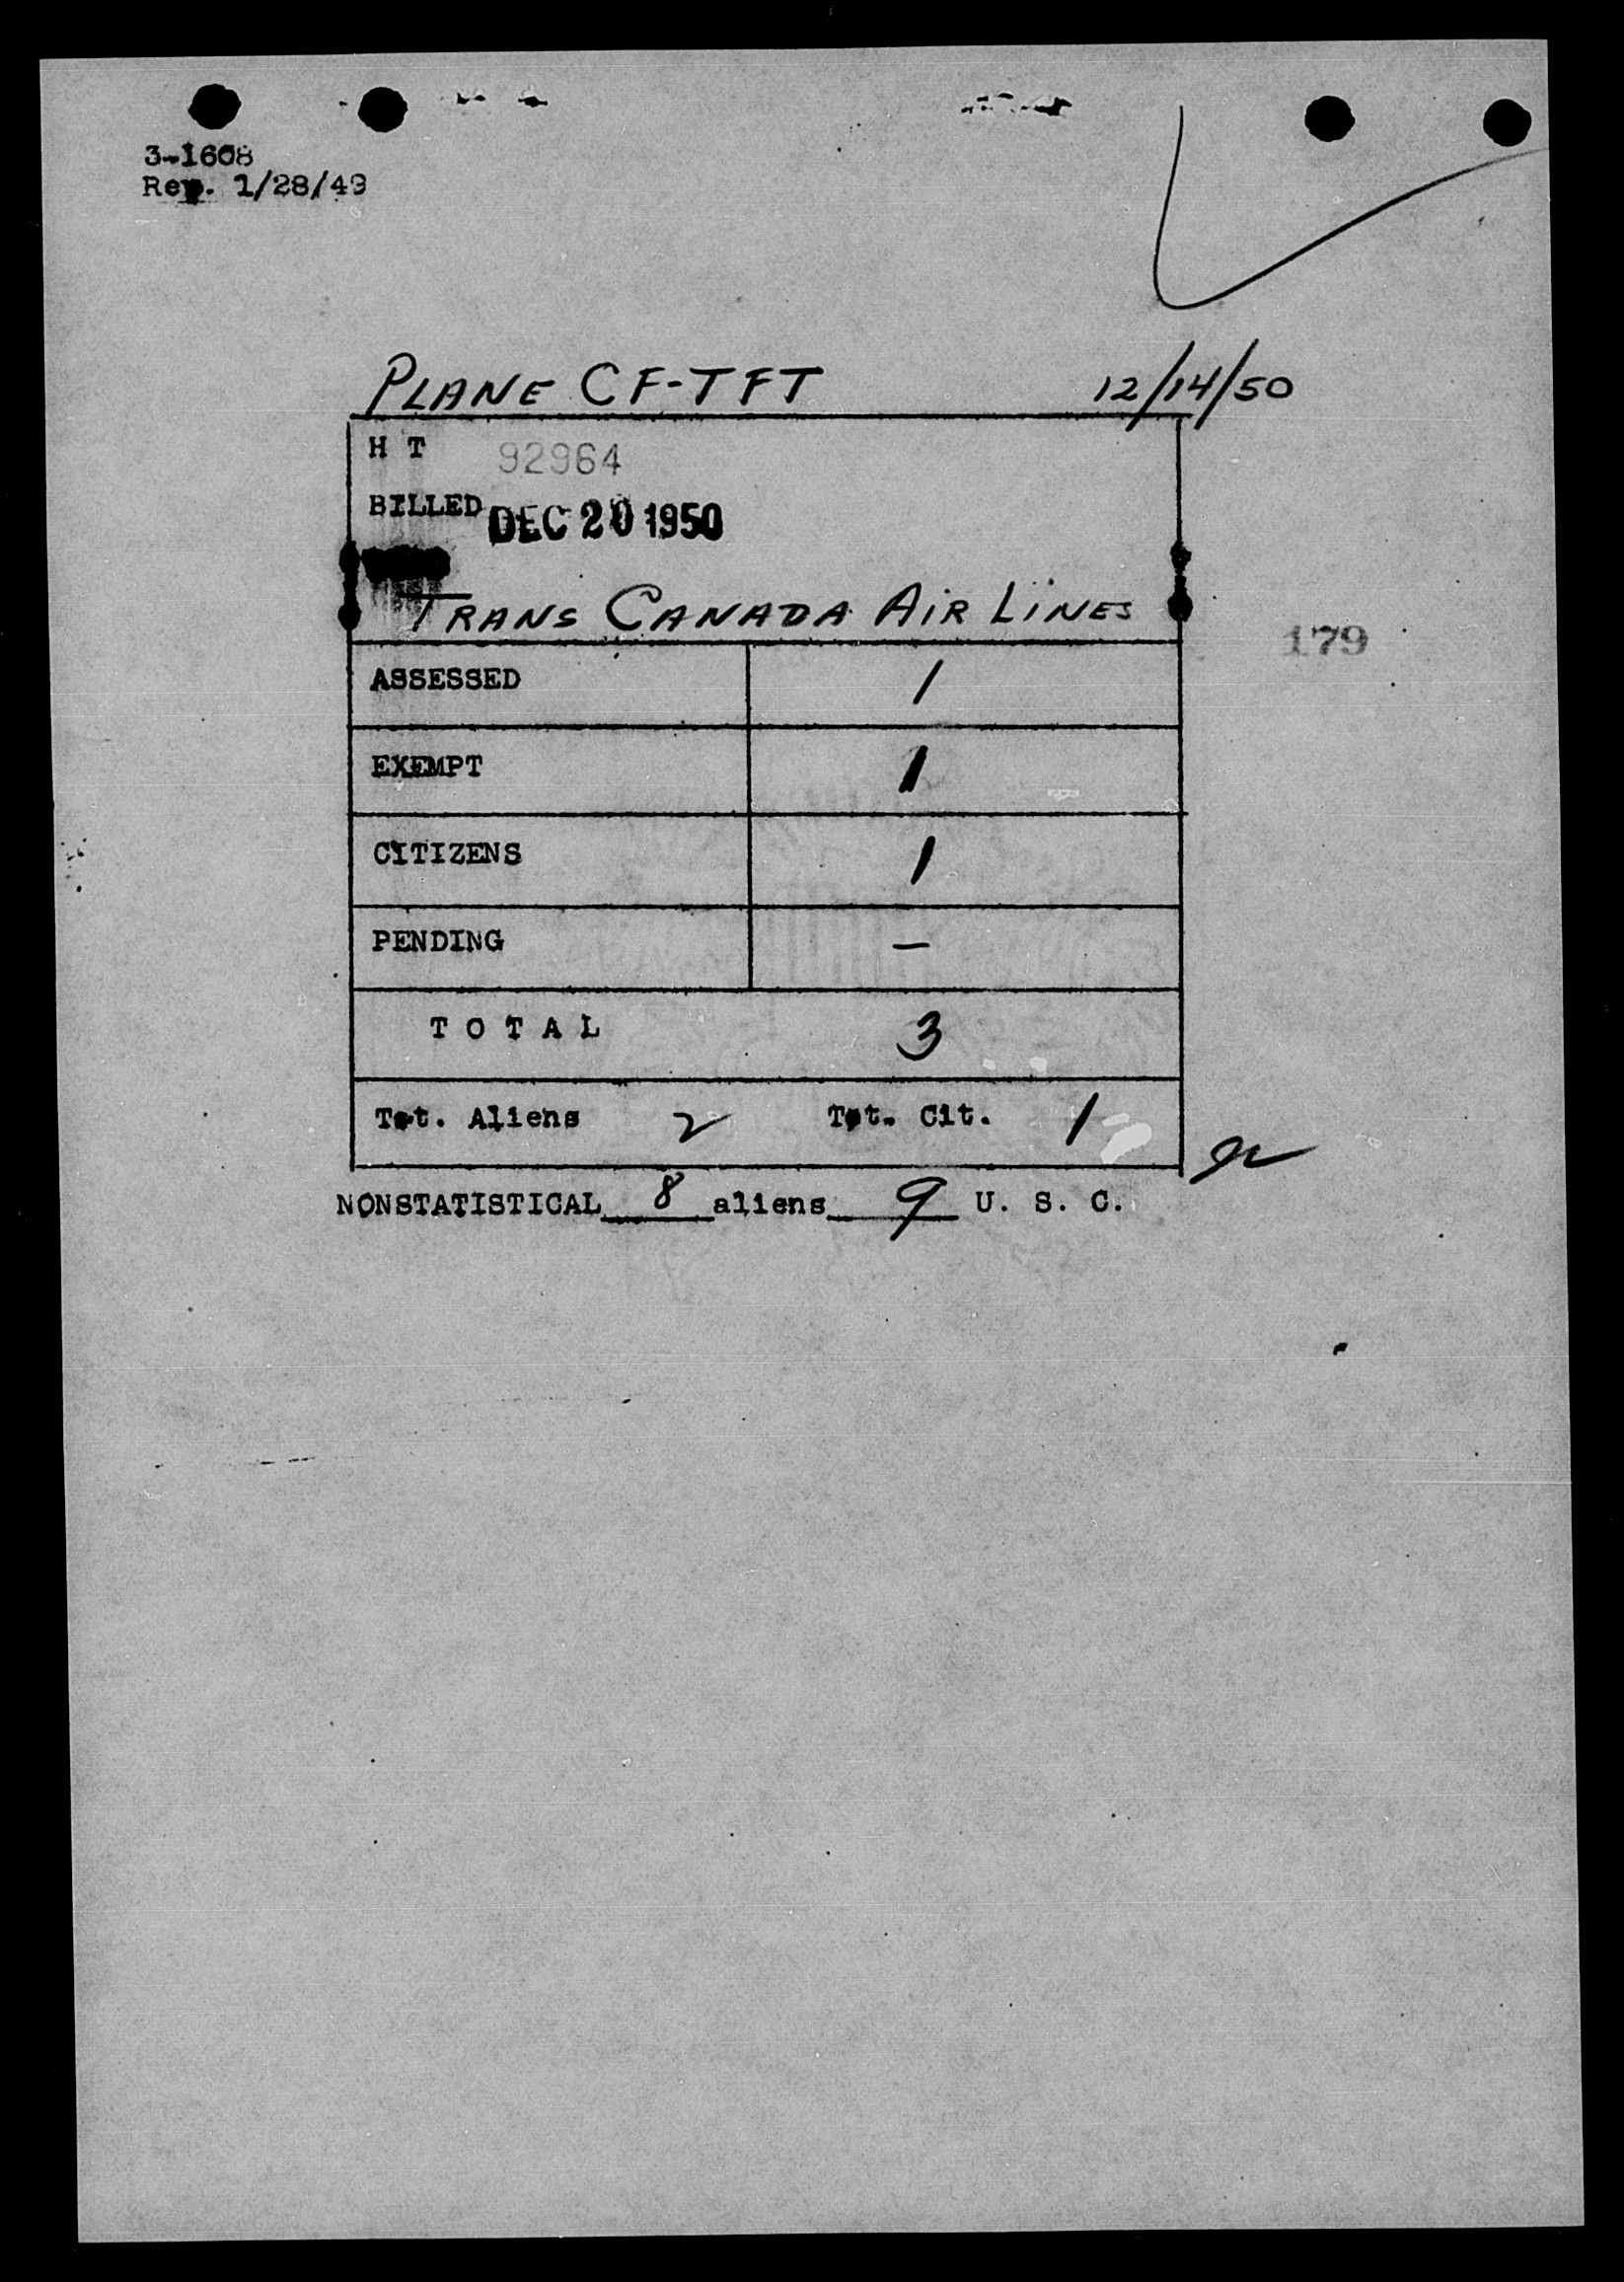 3-1608
Rev. 1/28/49
PLANE CF-TFT 12/14/50
H T 92964
BILLED DEC 20 1950
TRANS CANADA AIR LINES
179
ASSESSED 1
EXEMPT 1
CITIZENS 1
PENDING —
T O T A L 3
Tot. Aliens 2 Tot. Cit. 1
NONSTATISTICAL 8 aliens 9 U. S. C.